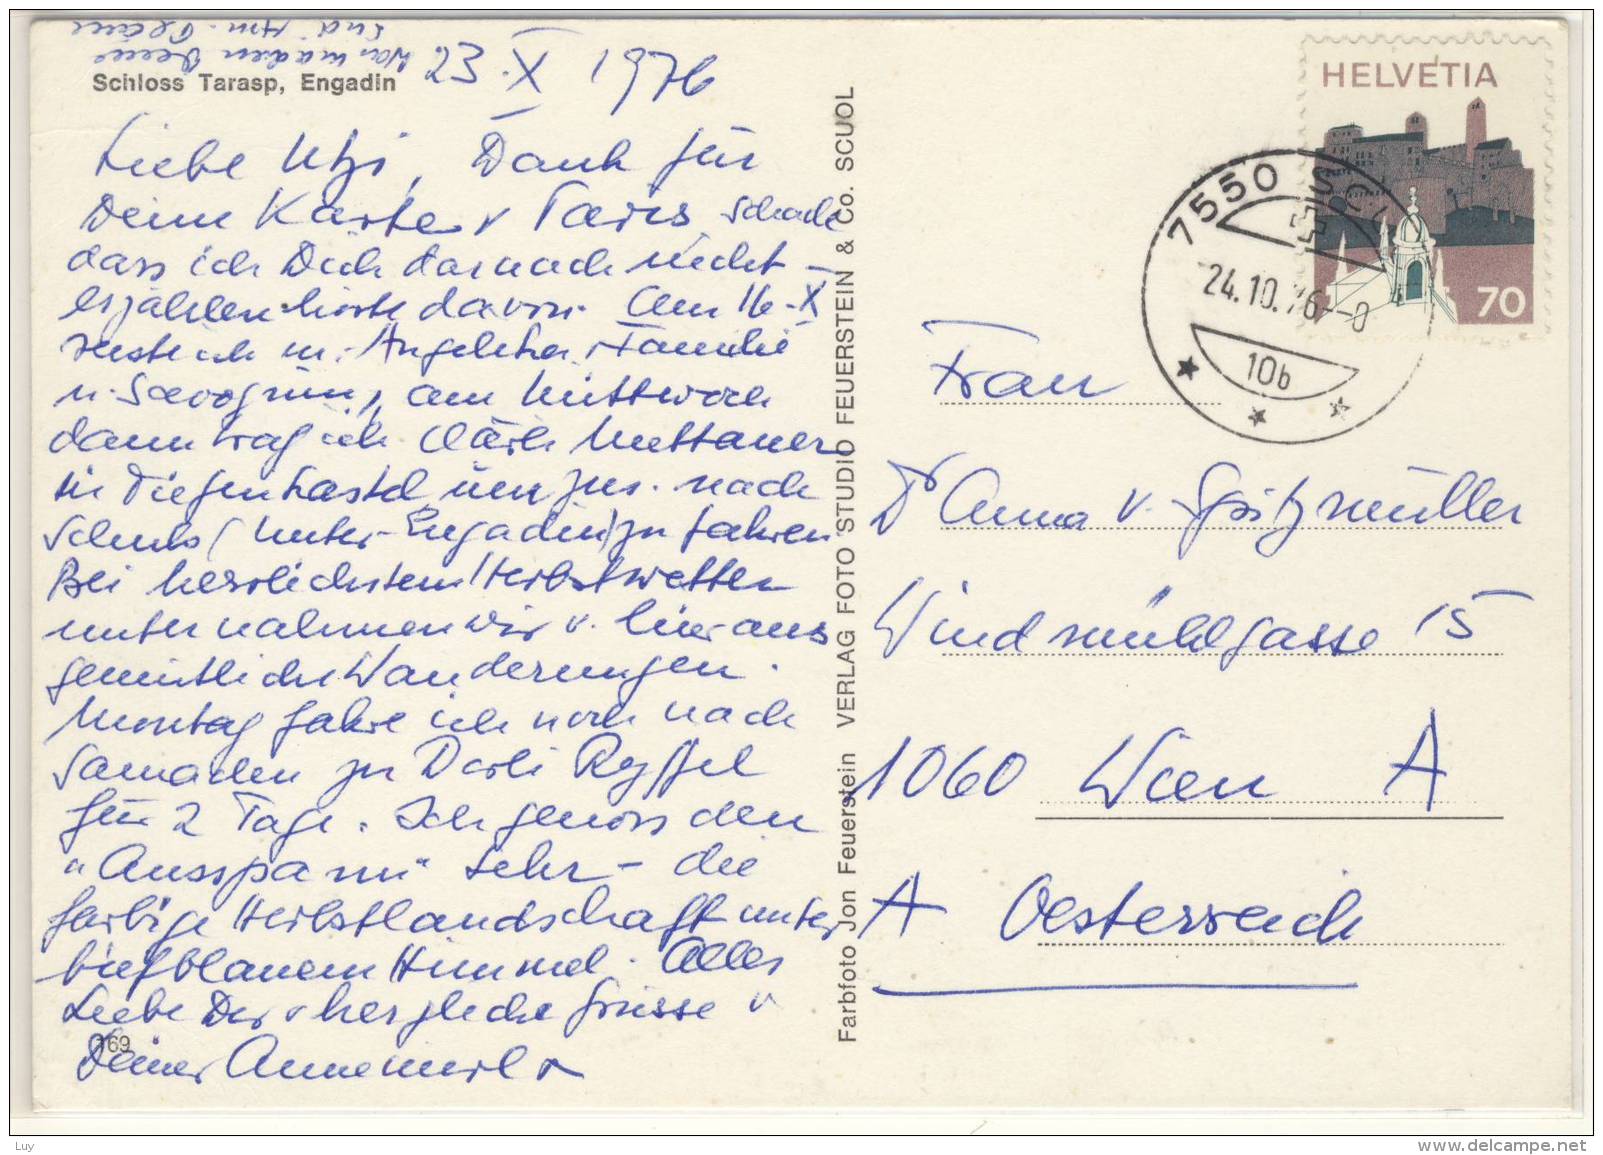 Schloss Tarasp, Engadin
23. X 1976
Liebe Utzi, Dank für
Deine Karte v Paris, schade
dass ich Dich darnach nicht
erzählen hörte davon. Am 16.X
reiste ich m. Angelika, Familie
n. Savognin, am Mittwoch
dann traf ich
in Tiefencastel um zus. nach
Schuls (Unter-Engadin) zu fahren.
Bei herrlichstem Herbstwetter
unternahmen wir v. hier aus
gemütliche Wanderungen.
Montag fahre ich noch nach
Samaden zu Dorli Ryffel
für 2 Tage. Ich genoss den
"Ausspann" sehr – die
farbige Herbstlandschaft unter
tiefblauem Himmel. Alles
Liebe Dir u herzliche Grüsse v
Deiner Annemarie
169
Farbfoto Jon Feuerstein VERLAG FOTO STUDIO FEUERSTEIN & Co. SCUOL
HELVETIA
70
7550 SCUOL
24.10.76–8
10b
Frau
Dr Anna v. Spitzmüller
Windmühlgasse 15
1060 Wien A
A Oesterreich
Luy
www.delcampe.net